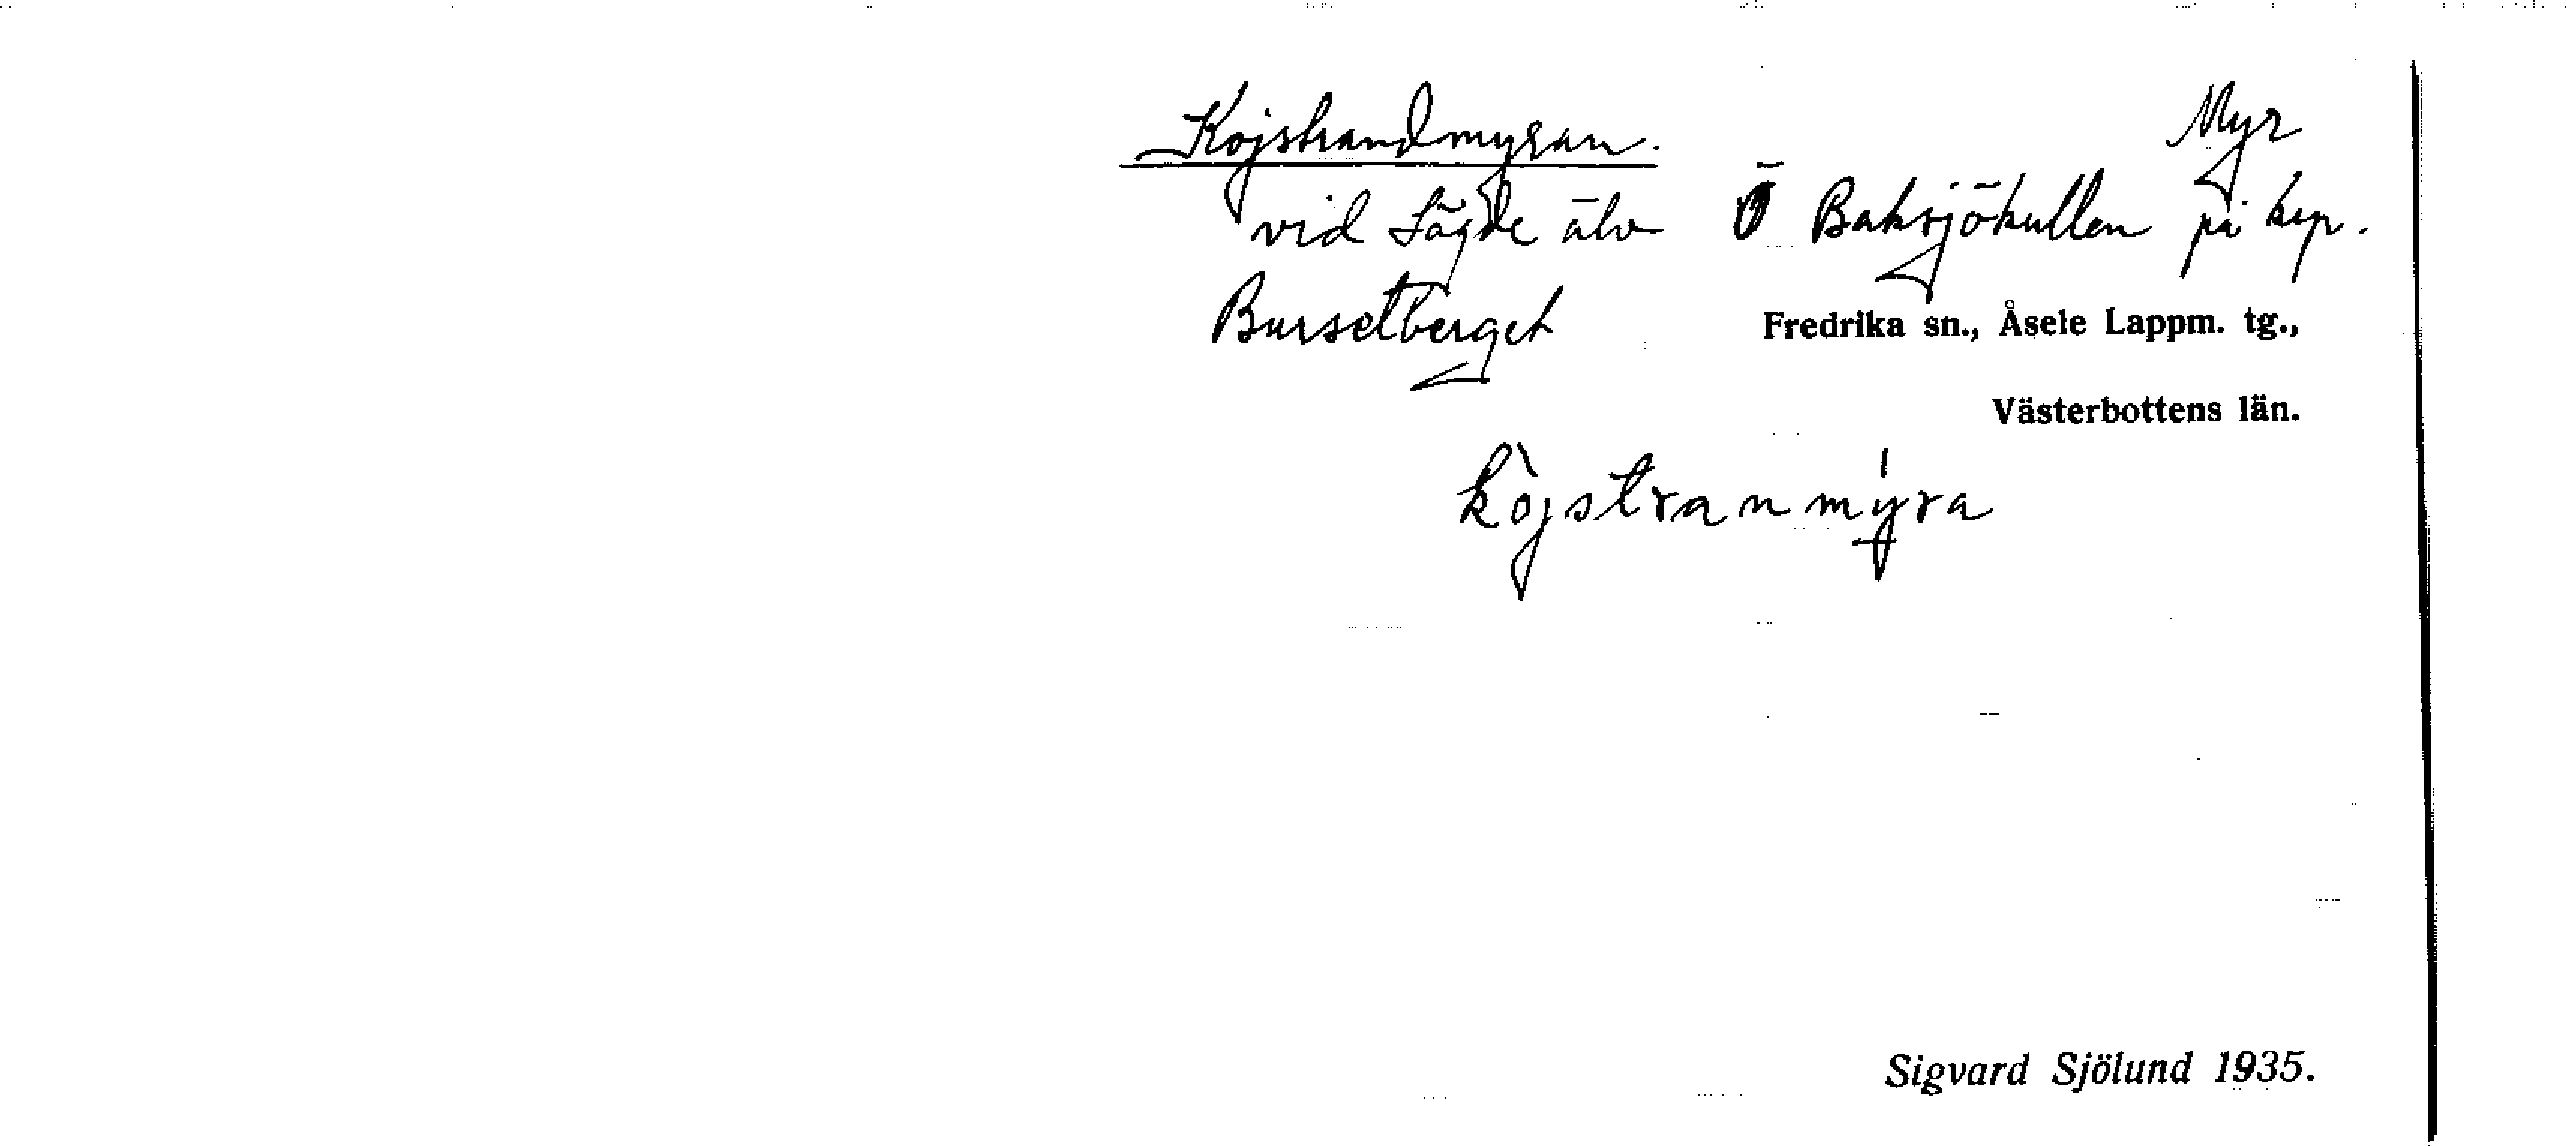 Kojstrandmyran.
Myr
vid Lögde älv Ö Baksjökullen på kpr.
Bursetberget
Fredrika sn., Åsele Lappm. tg.,
Västerbottens län.
kòjstranmýra
Sigvard Sjölund 1935.